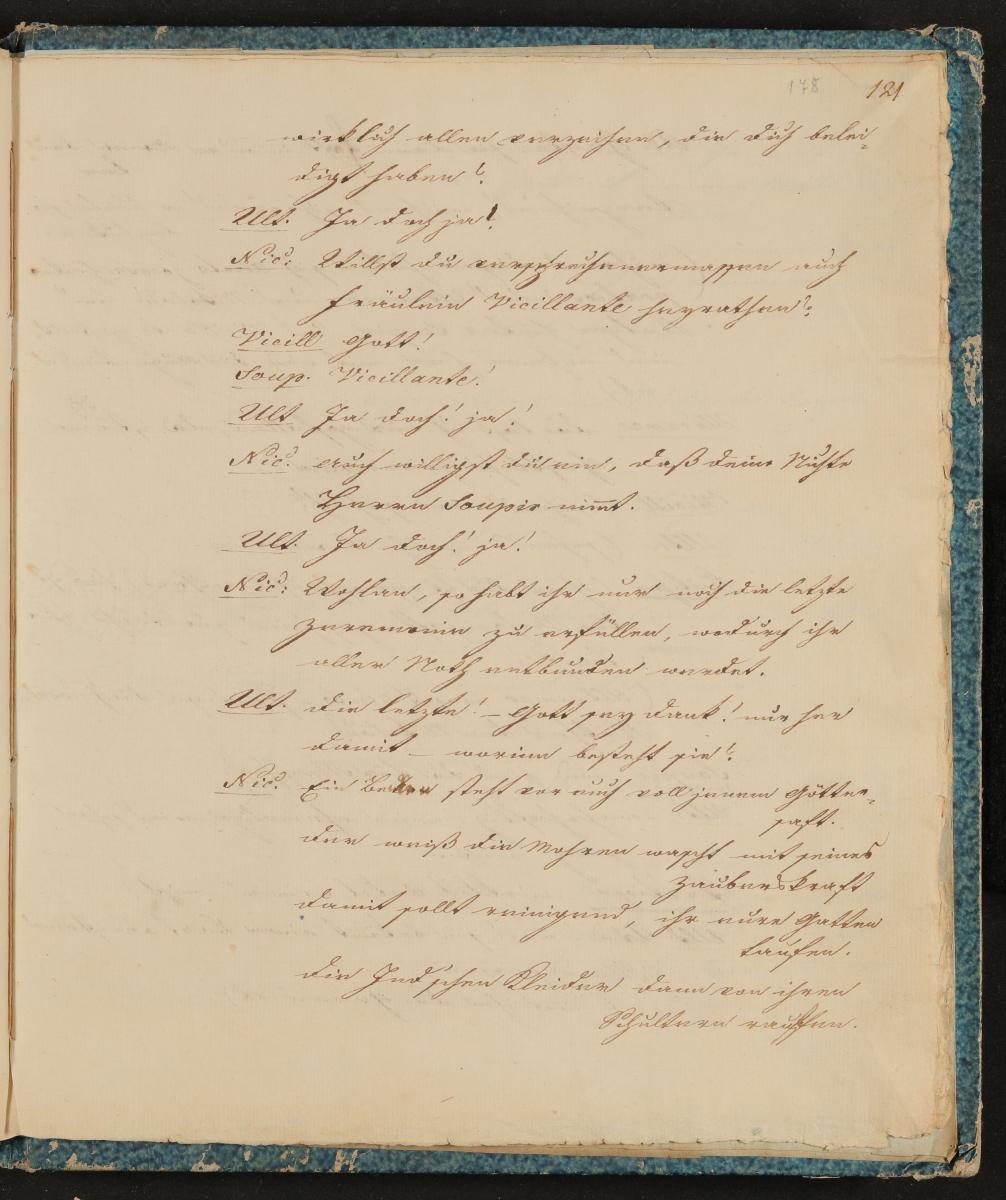 178 121
wirklich allen verzeihen, die dich belei-
digt haben?
Ult. Ja doch ja!
Nic: Willst du versprochenermassen auch
Fräulein Vieillante heyrathen?
Vieill Gott!
Soup. Vieillante!
Ult Ja doch! ja!
Nic. Auch willigst du ein, daß deine Nichte
Herrn Soupir nimt.
Ult. Ja doch! ja!
Nic: Wohlan, so habt ihr nur noch die letzte
Zeremonie zu erfüllen, wodurch ihr
aller Noth entbunden werdet.
Ult. Die letzte! – Gott sey dank! nur her
damit – worinn besteht sie?
Nic. Ein steht vor euch voll jenem Götter-
saft.
der weiß die Mohren wascht mit seines
Zaubers Kraft
damit sollt reinigend, ihr eure Gatten
taufen.
die Ind'schen Kleider dann von ihren
Schultern rauffen.